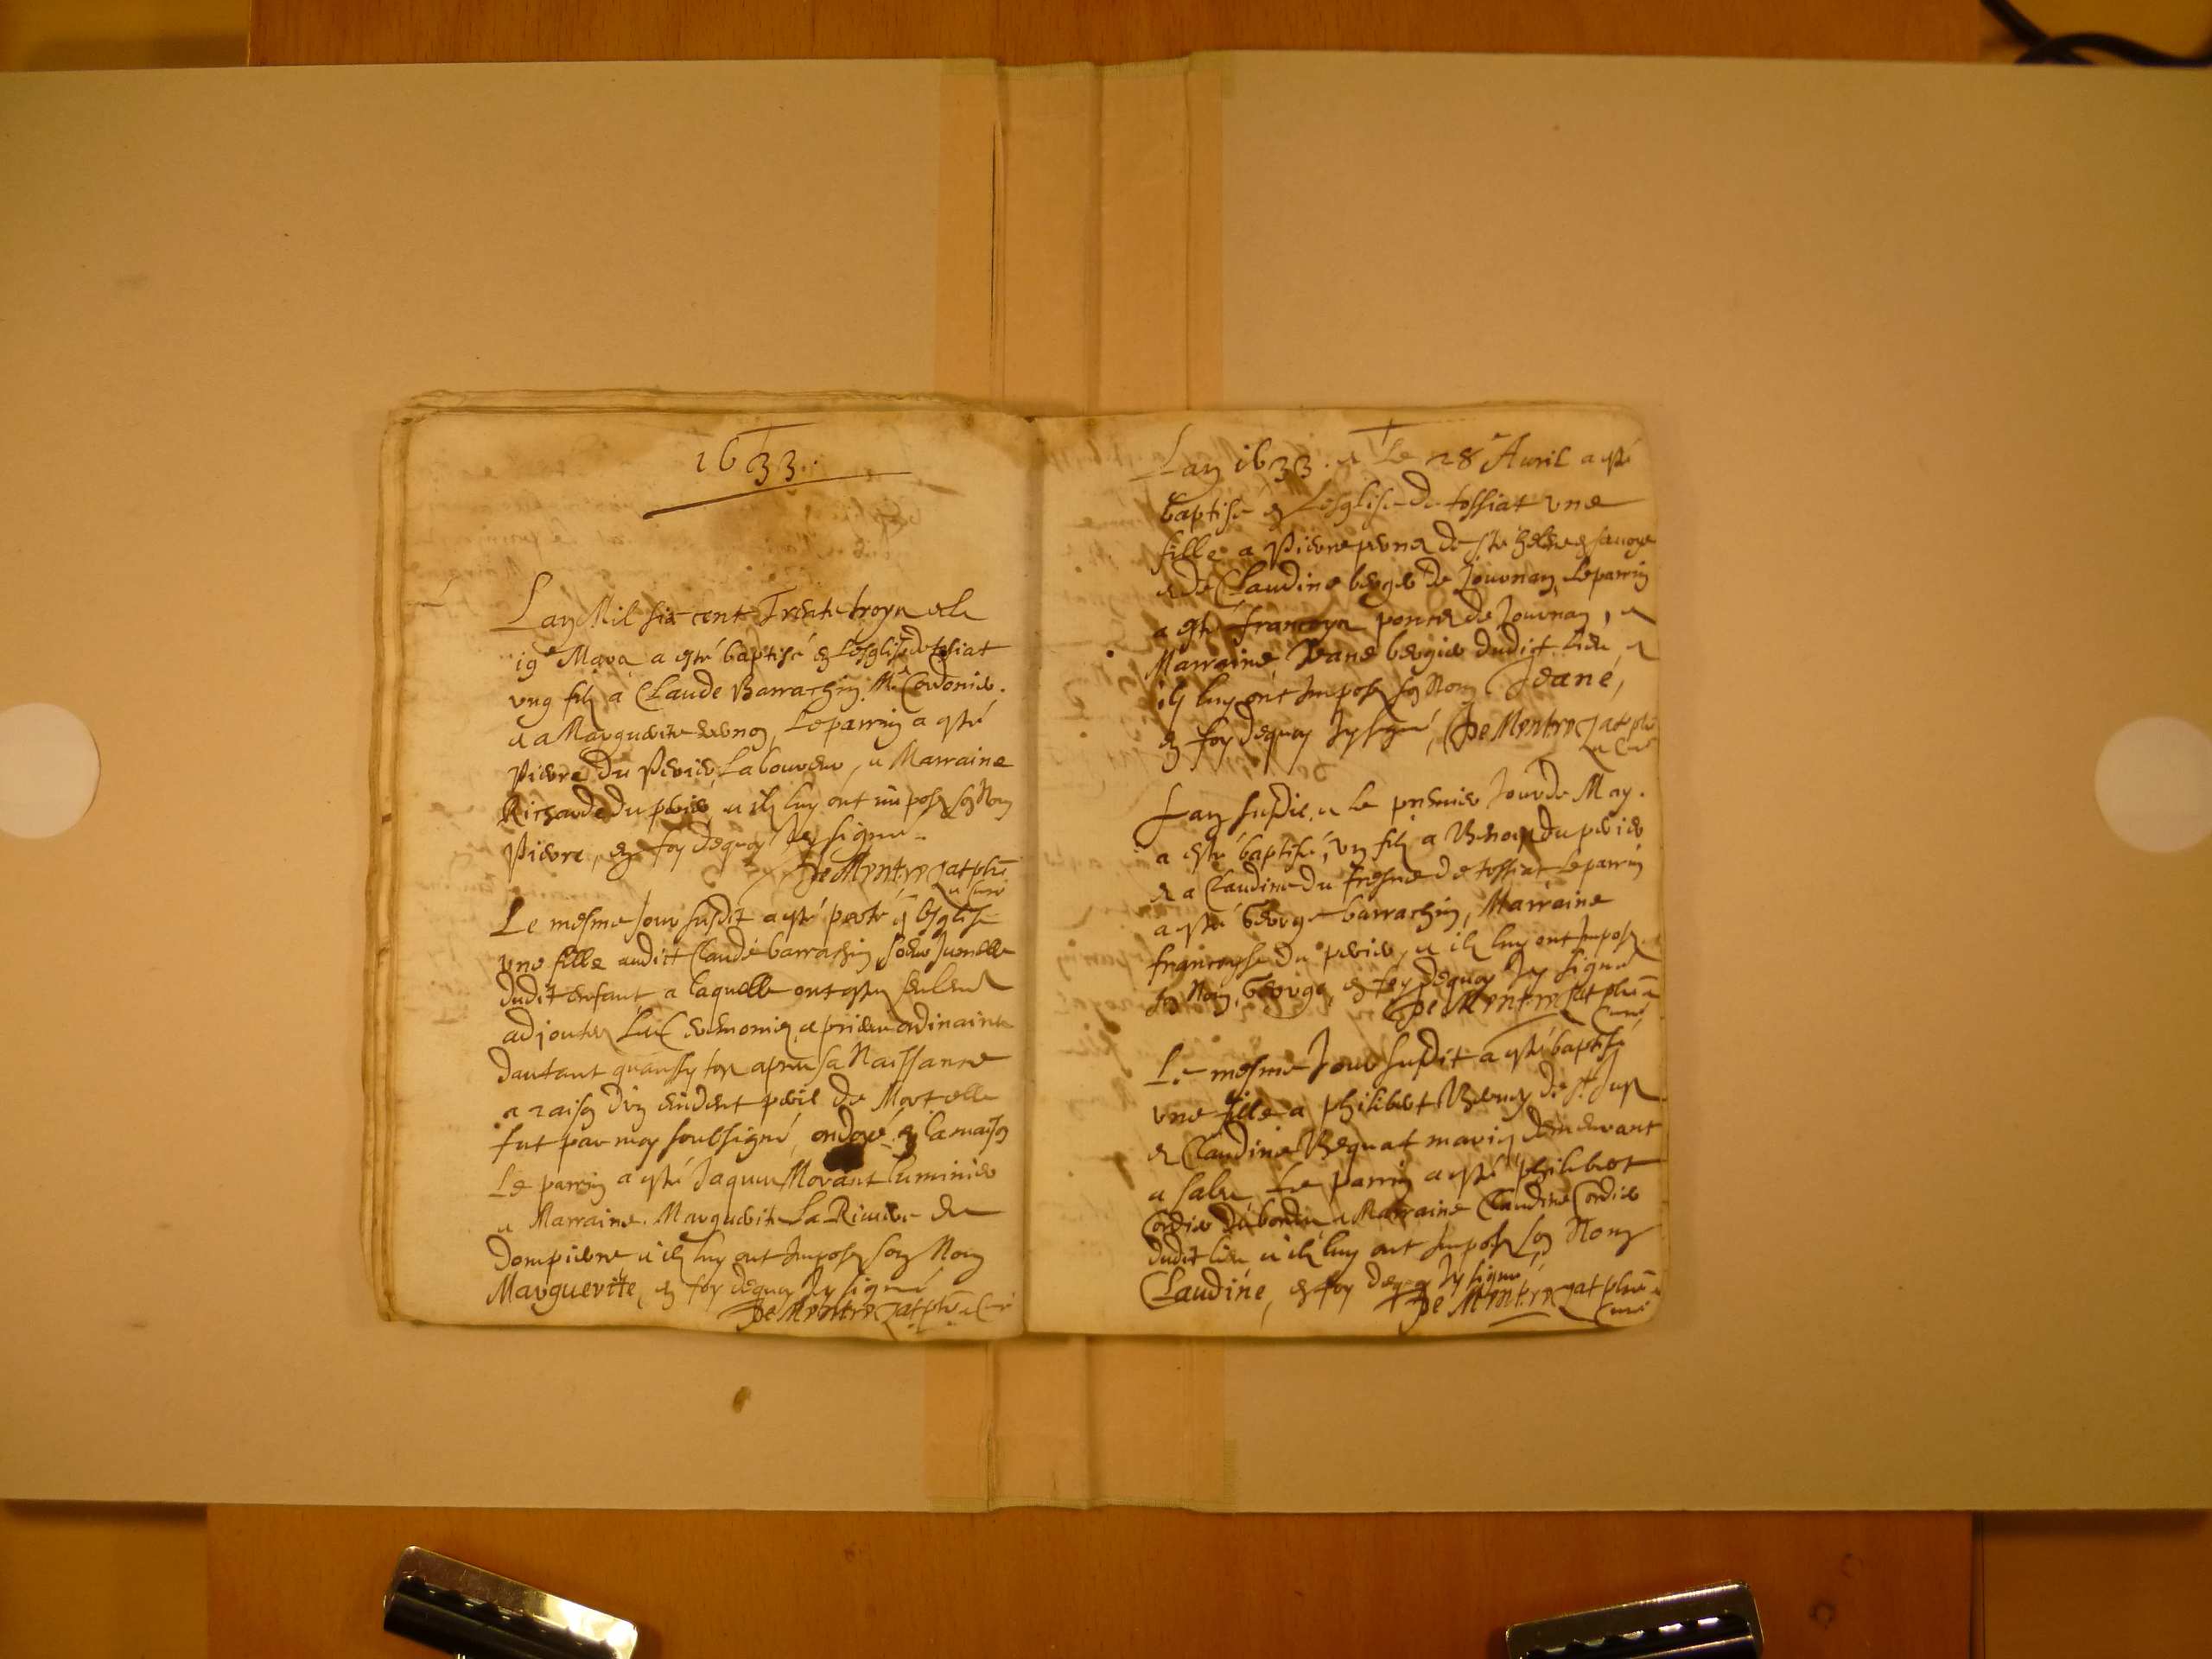 1633.
Lan Mil six cent Trente troys et le
19e Mars a esté baptisé en Lesglise de tossiat
ung filz a Claude Barrachin Me Cordonier.
et a Marguerite, Le parrin a esté
Pierre du Perier Laboureur, et Marraine
Richarde du perier et ilz luy ont imposé son Nom
Pierre, en foy dequoy Jay signé.
De Montrozat pbre
et Curé
Le mesme Jour susdit a esté porté en Lesglise
une fille audict Claude barrachin, soeur Jumelle
dudit enfant a laquelle ont estez seulemt
adjoutez Les Ceremonies et prieres ordinaires
dautant quaussy tost apres sa Naissance
a raison dun euident peril de Mort elle
fut par moy soubsigné, ondoyé en la maison
Le parrin a esté Jaques Morant Luminier
et Marraine. Marguerite La Riuiere de
Dompierre, et ilz luy ont Imposé son Nom
Marguerite, en foy dequoy Jay signé
De Montrozat pbre et Curé
Lan 1633. et Le 28e Auril a esté
baptisé en Lesglise de tossiat une
fille a Pierre de
et de Claudine berger de Journan, Le parrin
a esté francoys de Journan, et
Marraine Jeane bergier dudict Lieu et
ilz luy ont Imposé son Nom Jeane,
en foy dequoy Jay signé, De Montrozat pbre
et Curé
Lan susdit, et le premier Jour de May.
a esté baptisé, un filz a Benoist du perier
et a Claudine du fresne de tossiat Le parrin
a esté George barrachin, Marraine
francoyse du perier, et ilz luy ont Imposé
son Nom, George, en foy dequoy Jay signé
De Montrozat pbre et
Curé
Le mesme Jour susdit a esté baptisé
une fille a philibert de St Just
et Claudine mariez demeurant
a Le parrin a esté philibert
Cordier Marraine Claudine Cordier
dudit lieu et ilz luy ont Imposé son Nom
Claudine, en foy dequoy Jay signé,
De Montrozat pbre et
Curé